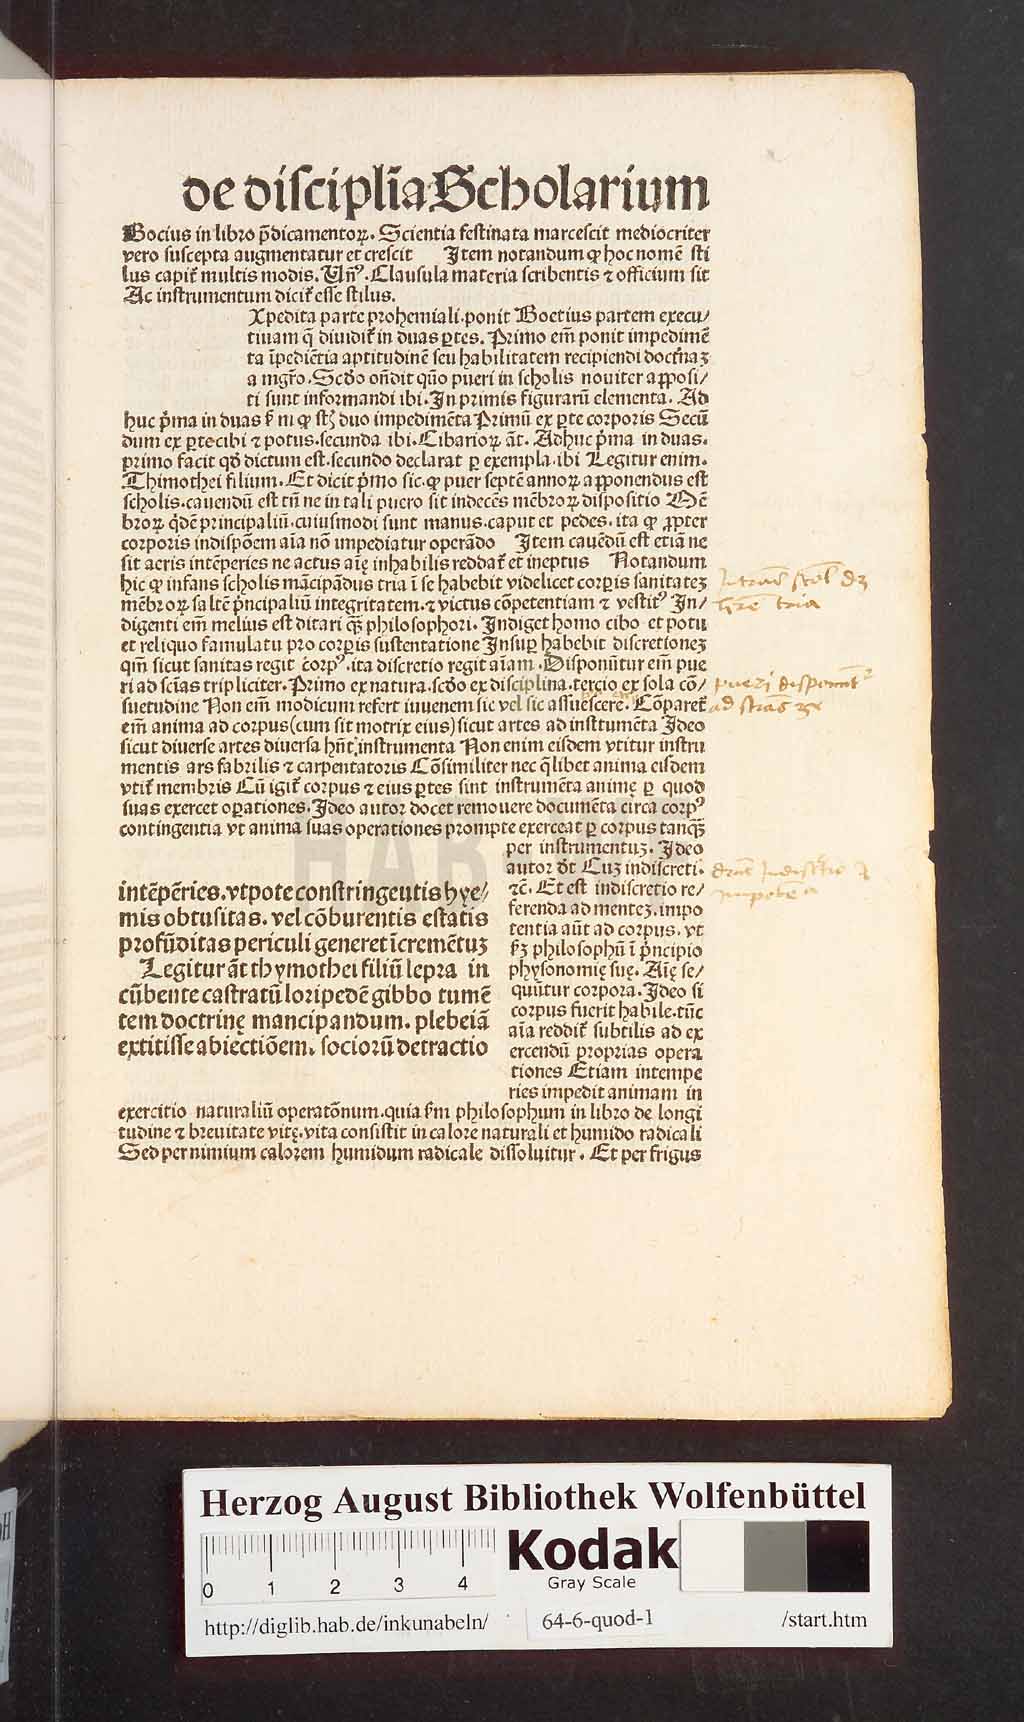 de discipl̄ia Scholarium
Bocius in libro p̄dicamentoꝝ. Scientia festinata marcescit mediocriter
vero suscepta augmentatur et crescit Item notandum ꝙ hoc nomē sti
lus capit᷑ multis modis. Vn̄ꝰ. Clausula materia scribentis ⁊ officium sit
Ac instrumentum dicit᷑ esse stilus.
Xpedita parte prohemiali. ponit Boetius partem execu/
tiuam q̄ diuidit᷑ in duas ꝑtes. Primo em̄ ponit impedimē
ta īpediētia aptitudinē seu habilitatem recipiendi doctͥnaꝫ
a mgr̄o. Scd̄o on̄dit quō pueri in scholis nouiter apposi/
ti sunt informandi ibi. In primis figurarū elementa. Ad
huc pͥma in duas duo impedimēta Primū ex ꝑte corporis Secū
dum ex ꝑte cibi ⁊ potus. secunda ibi. Cibarioꝝ āt. Adhuc pͥma in duas.
primo facit qd̄ dictum est. secundo declarat ꝑ exempla. ibi Legitur enim.
Thimothei filium. Et dicit pͥmo sic. ꝙ puer septē annoꝝ apponendus est
scholis. cauendū est tn̄ ne in tali puero sit indecēs mēbroꝝ dispositio Mē
broꝝ qͥdē principaliū. cuiusmodi sunt manus. caput et pedes. ita ꝙ ꝓpter
corporis indispōem aīa nō impediatur operādo Item cauēdū est etiā ne
sit aeris intēperies ne actus aīę inhabilis reddat᷑ et ineptus Notandum
hic ꝙ infans scholis mācipādus tria ī se habebit videlicet corꝑis sanitateꝫ
mēbroꝝ saltē pͥncipaliū integritatem. ⁊ victus cōpetentiam ⁊ vestitꝰ In/
digenti em̄ melius est ditari qꝫ̄ philosophori. Indiget homo cibo et potu
et reliquo famulatu pro corꝑis sustentatione Insuꝑ habebit discretioneꝫ
qm̄ sicut sanitas regit corpꝰ. ita discretio regit aīam. Disponūtur em̄ pue
ri ad scīas tripliciter. Primo ex natura. scd̄o ex disciplina. tercio ex sola cō/
suetudine Non em̄ modicum refert iuuenem sic vel sic assuescere. Cōparet᷑
em̄ anima ad corpus (cum sit motrix eius) sicut artes ad instrumēta Ideo
sicut diuerse artes diuersa hn̄t instrumenta Non enim eisdem vtitur instru
mentis ars fabrilis ⁊ carpentatoris Cōsimiliter nec qͥlibet anima eisdem
vtit᷑ membris Cū igit᷑ corpus ⁊ eius ꝑtes sint instrumēta animę ꝑ quod
suas exercet oꝑationes. Ideo autor docet remouere documēta circa corpꝰ
contingentia vt anima suas operationes prompte exerceat ꝑ corpus tanqꝫ̄
per instrumentuꝫ. Ideo
autor dt̄ Cuꝫ indiscreti.
⁊c̄. Et est indiscretio re/
ferenda ad menteꝫ. impo
tentia aūt ad corpus. vt
philosophū ī pͥncipio
physonomię suę. Aīę se/
quūtur corpora. Ideo si
corpus fuerit habile. tūc
aīa reddit᷑ subtilis ad ex
ercendū proprias opera
tiones Etiam intempe
ries impedit animam in
intēpēries. vtpote constringentis hye/
mis obtusitas. vel cōburentis estatis
profūditas periculi generet īcremētuꝫ
Legitur āt thymothei filiū lepra in
cūbente castratū loripedē gibbo tumē
tem doctrinę mancipandum. plebeiā
extitisse abiectiōem. sociorū detractio
exercitio naturaliū operatōnum. quia philosophum in libro de longi
tudine ⁊ breuitate vitę. vita consistit in calore naturali et humido radicali
Sed per nimium calorem humidum radicale dissoluitur. Et per frigus
tria
pueri
ad
Herzog August Bibliothek Wolfenbüttel
0 1 2 3 4
Kodak
Gray Scale
http://diglib.hab.de/inkunabeln/ 64-6-quod-1 /start.htm